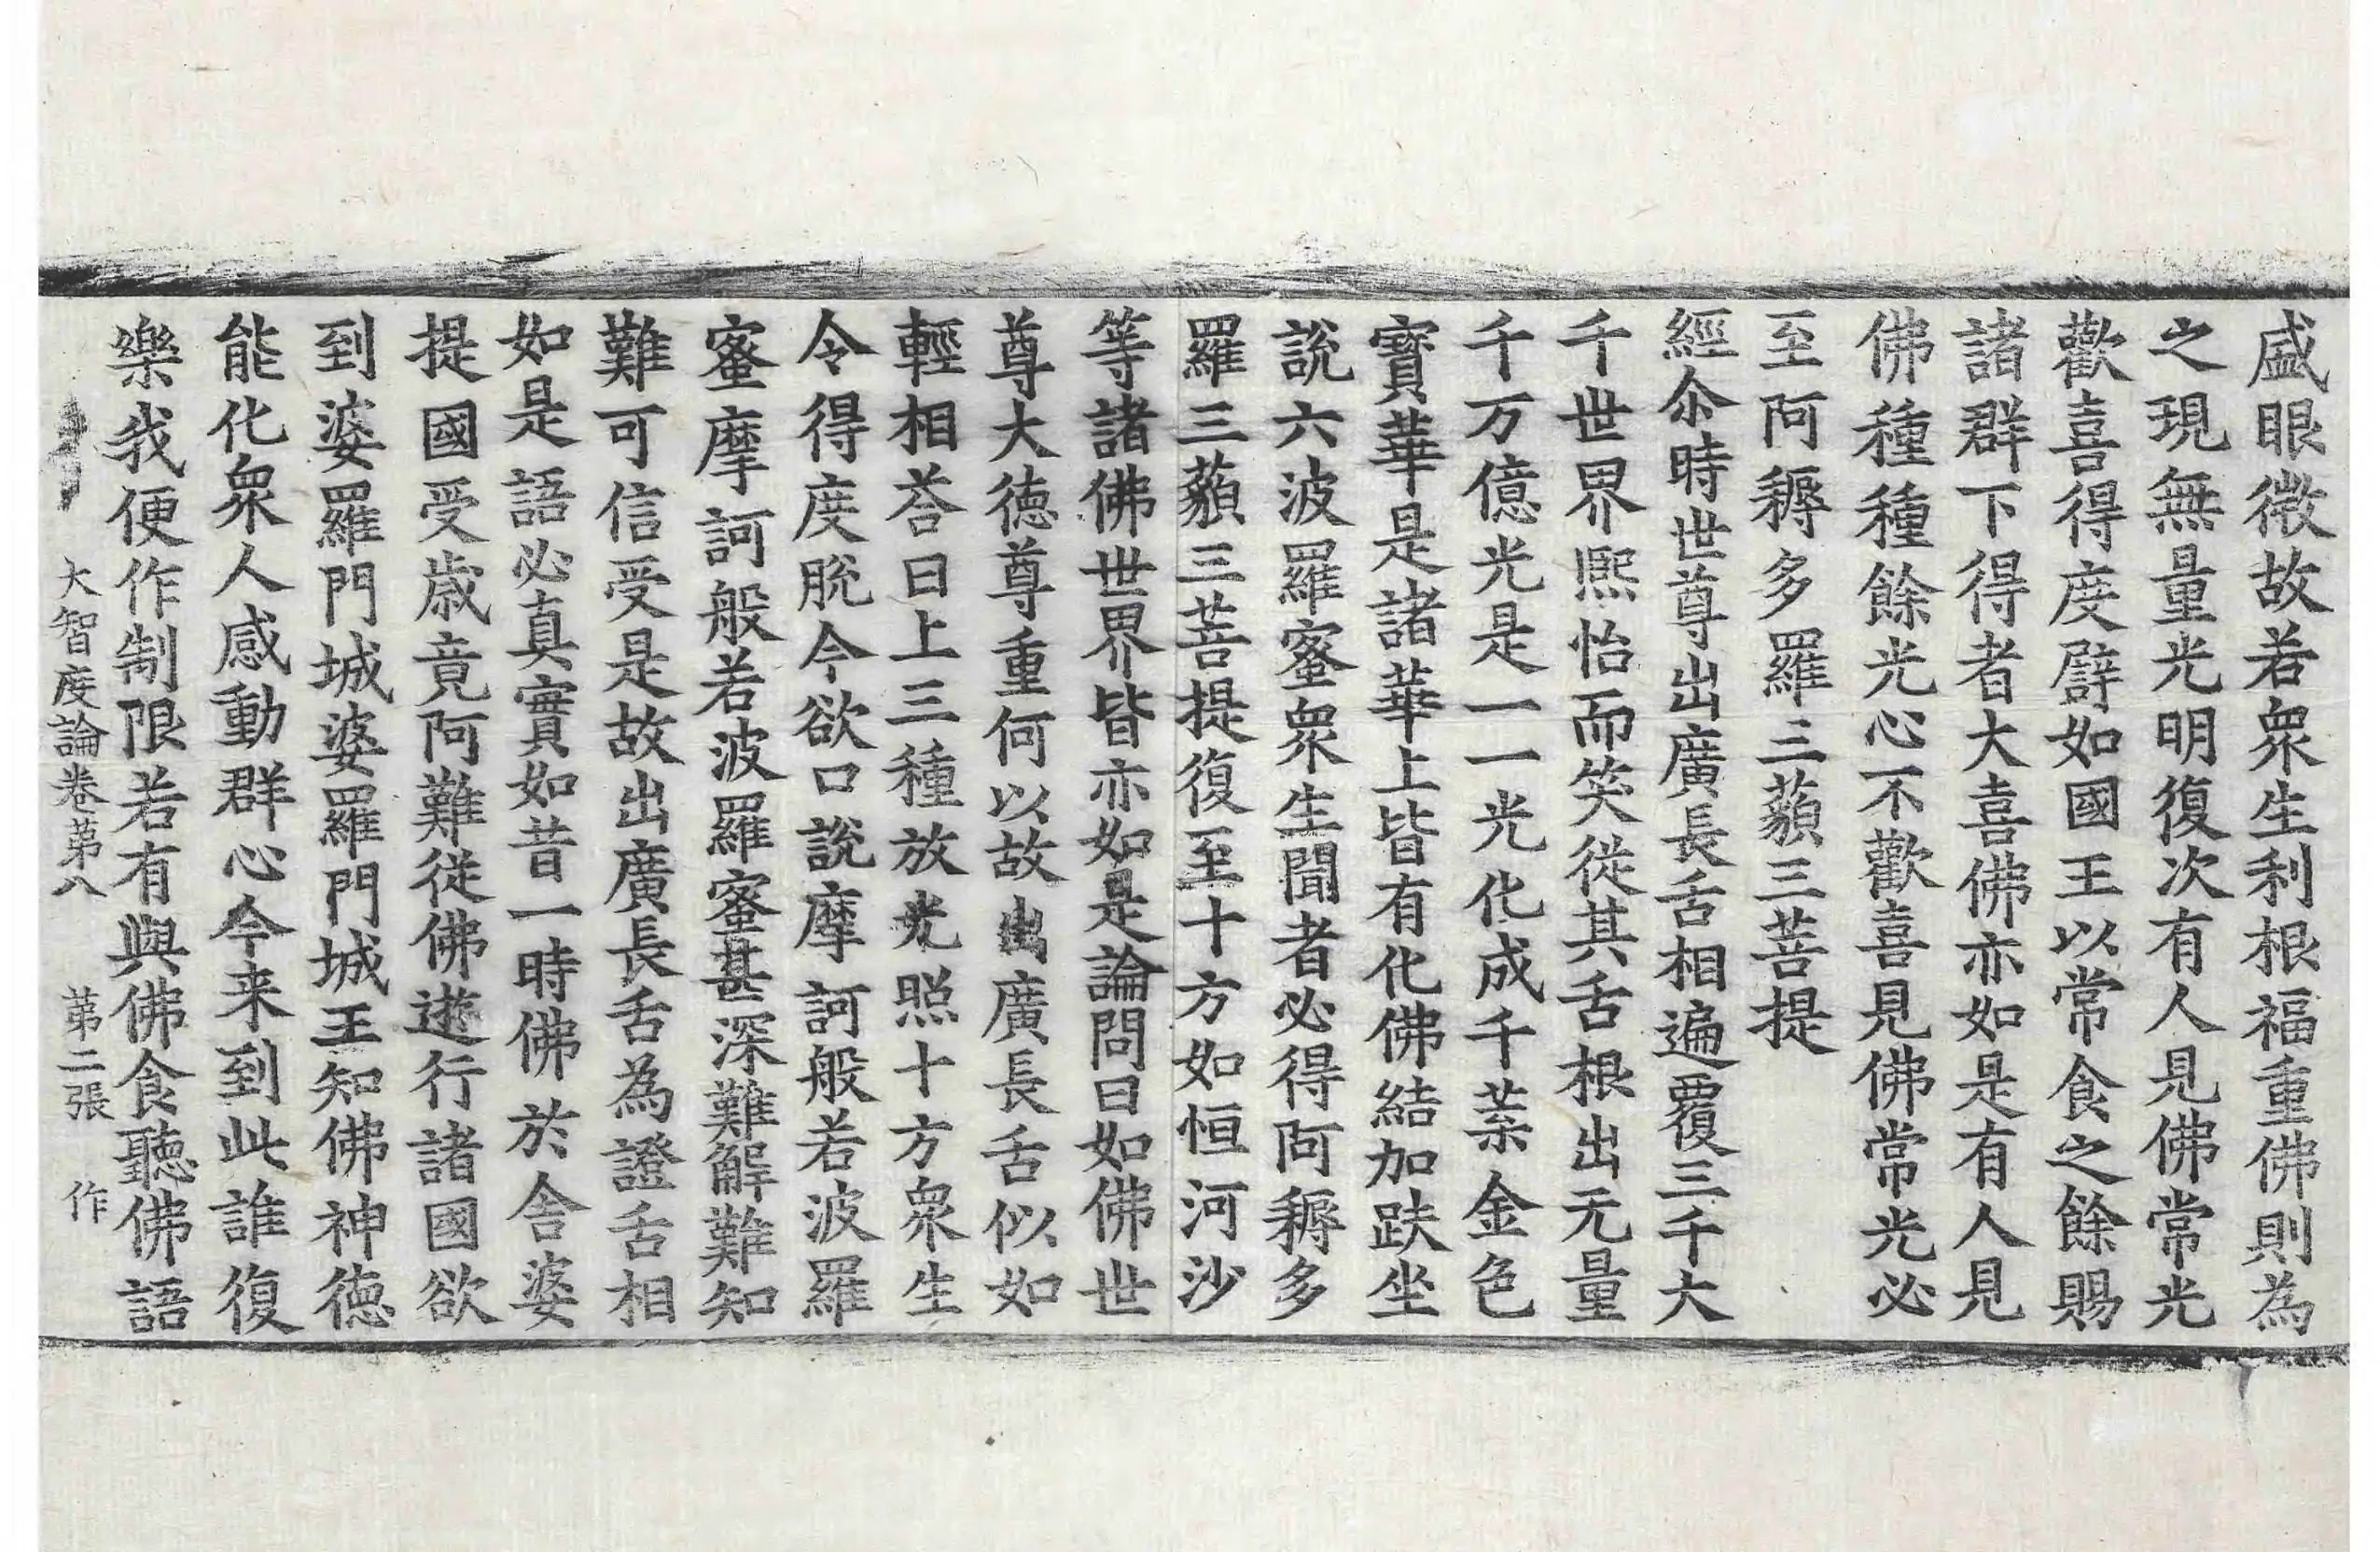 盛眼微故若衆生利根福重佛則為
之現無量光明復次有人見佛常光
歡喜得度譬如國王以常食之餘賜
諸群下得者大喜佛亦如是有人見
佛種種餘光心不歡喜見佛常光必
至阿耨多羅三藐三菩提
經尒時世尊出廣長舌相遍覆三千大
千世界熙怡而笑從其舌根出无量
千万億光是一一光化成千葉金色
寶華是諸華上皆有化佛結加趺坐
説六波羅蜜衆生聞者必得阿耨多
羅三藐三菩提復至十方如恒河沙
等諸佛世界皆亦如是論問曰如佛世
尊大德尊重何以故出廣長舌似如
輕相荅曰上三種放光照十方衆生
令得度脫今欲口說摩訶般若波羅
蜜摩訶般若波羅蜜甚深難解難知
難可信受是故出廣長舌為證舌相
如是語必真實如昔一時佛於舍婆
提國受歳竟阿難從佛遊行諸國欲
到婆羅門城婆羅門城王知佛神德
能化衆人感動群心今来到此誰復
樂我便作制限若有與佛食聽佛語
大智度論卷第八 第二張 作